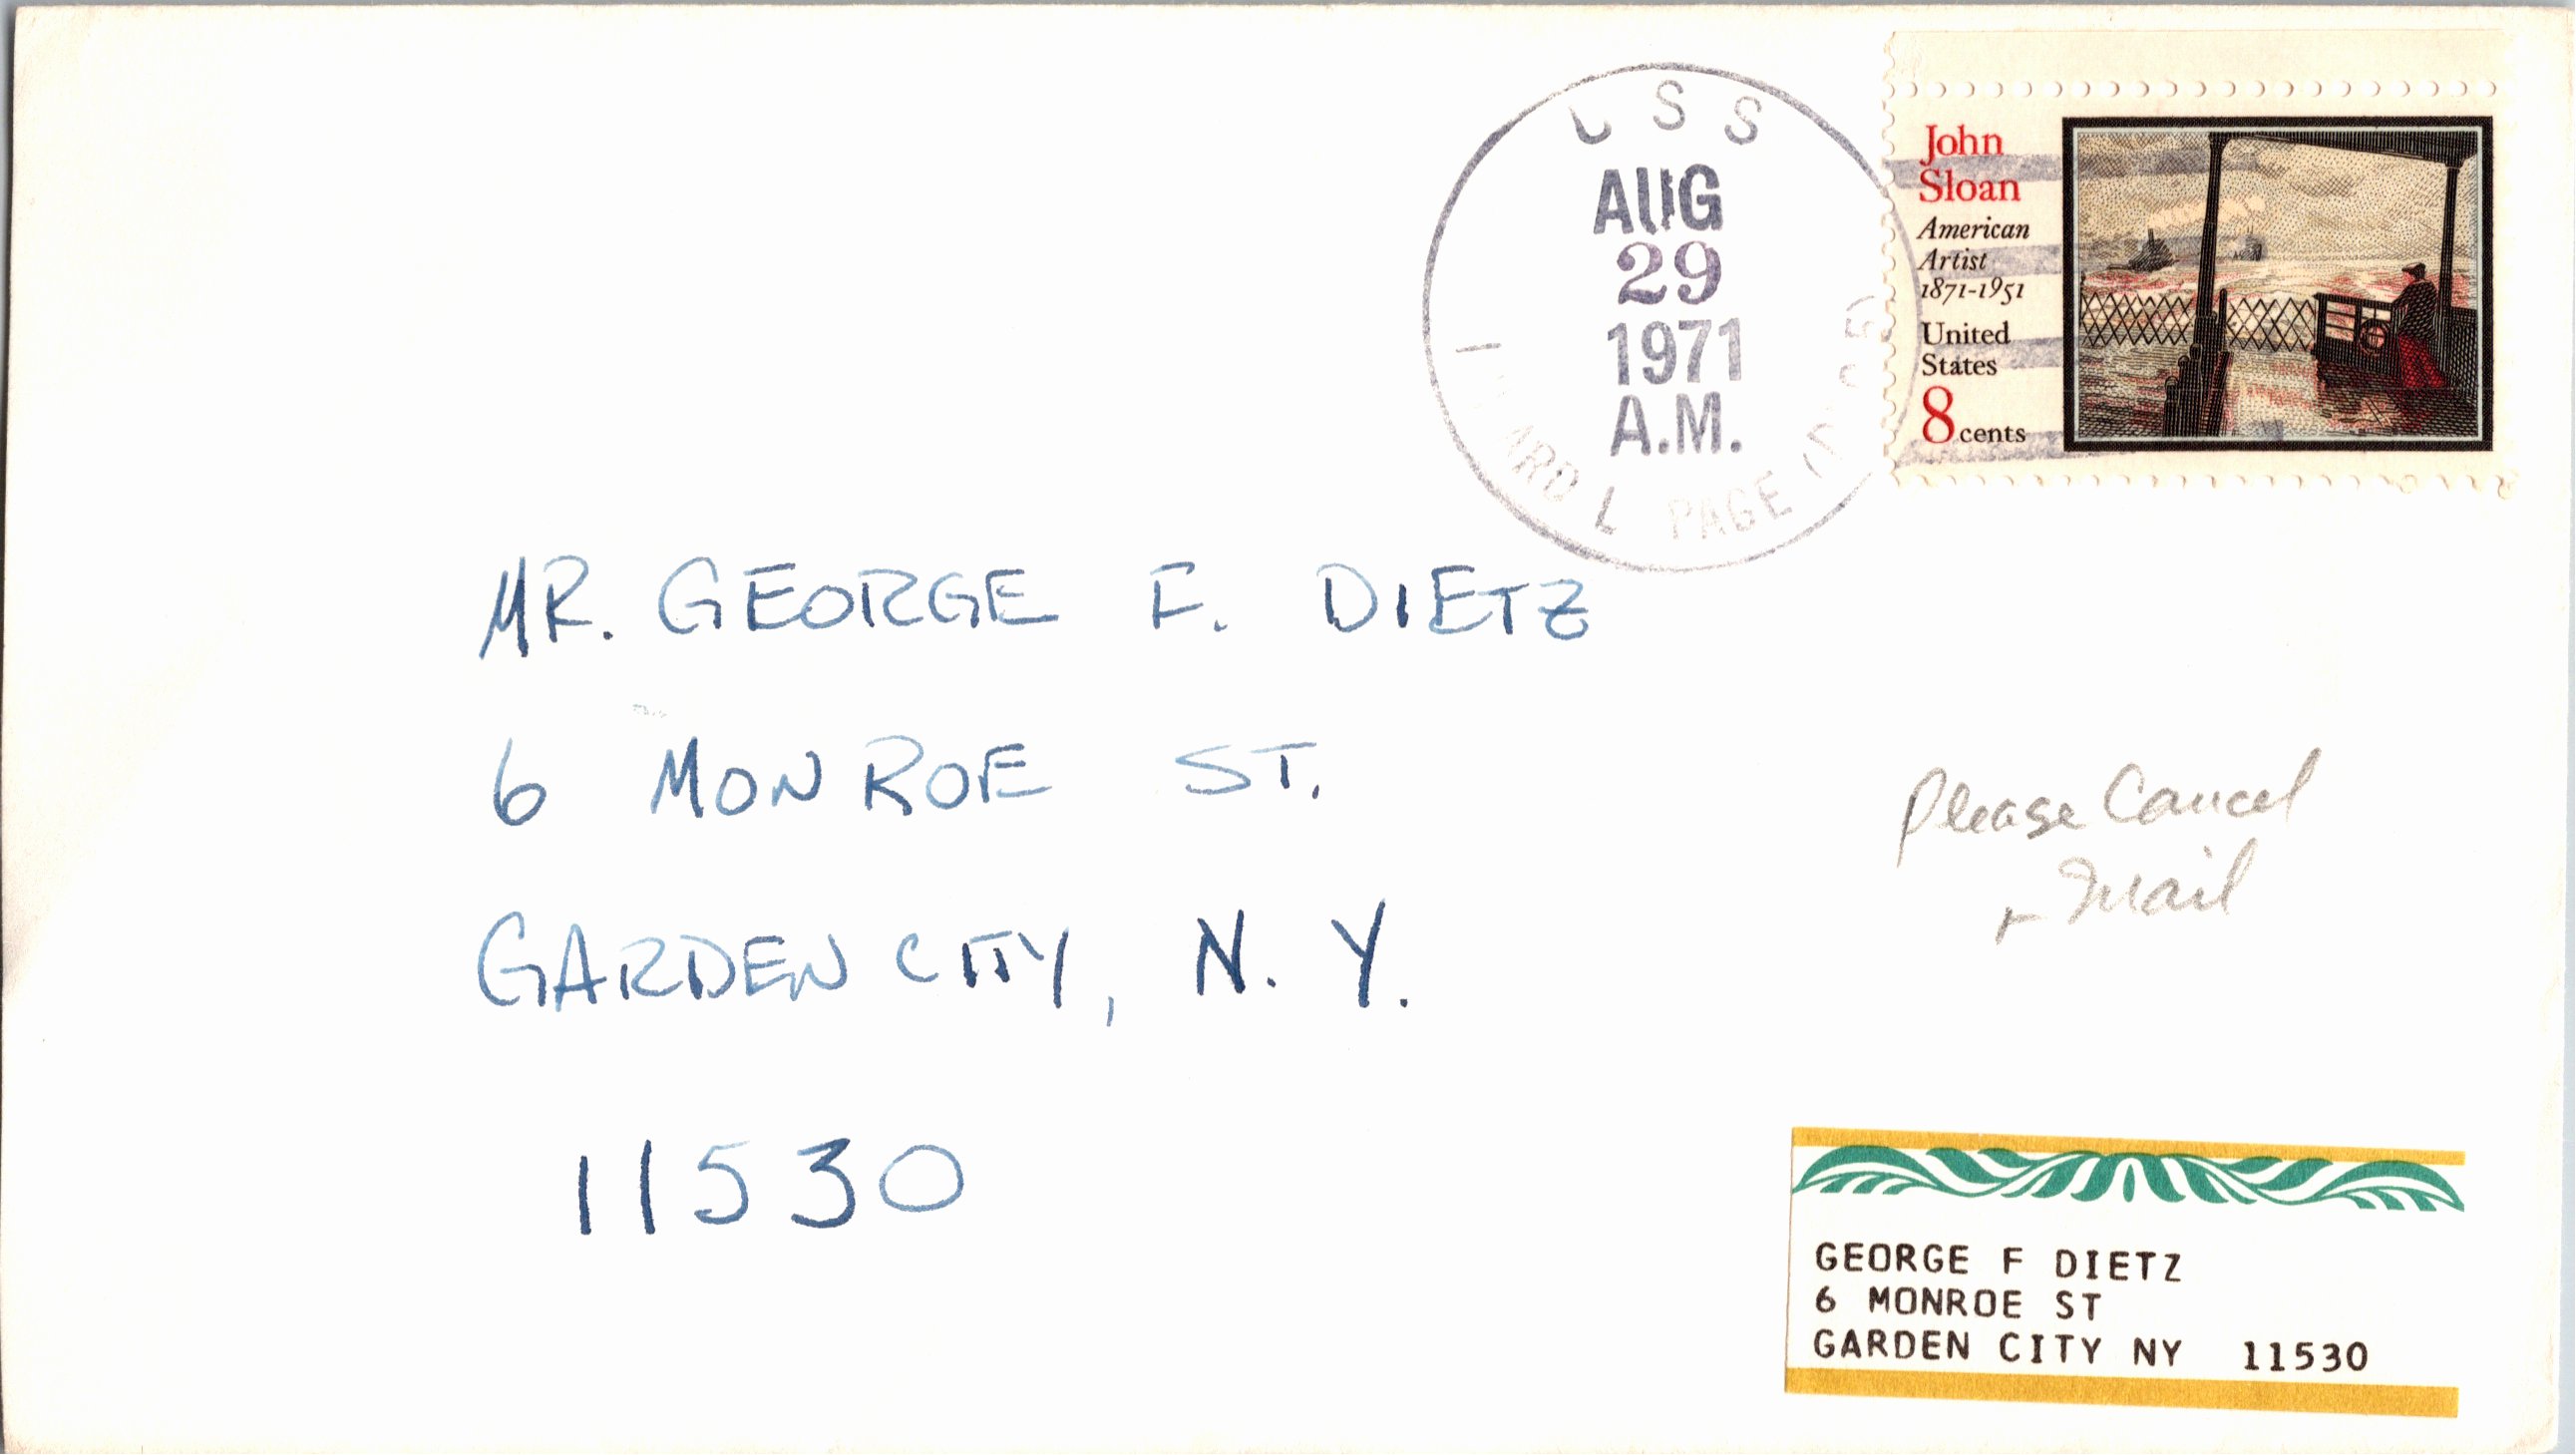 USS
AUG
29
1971
A.M.
L PAGE
John
Sloan
American
Artist
1871-1951
United
States
8 cents
MR. GEORGE F. DIETZ
6 MONROE ST.
GARDEN CITY, N. Y.
11530
Please Cancel
+ Mail
GEORGE F DIETZ
6 MONROE ST
GARDEN CITY NY 11530